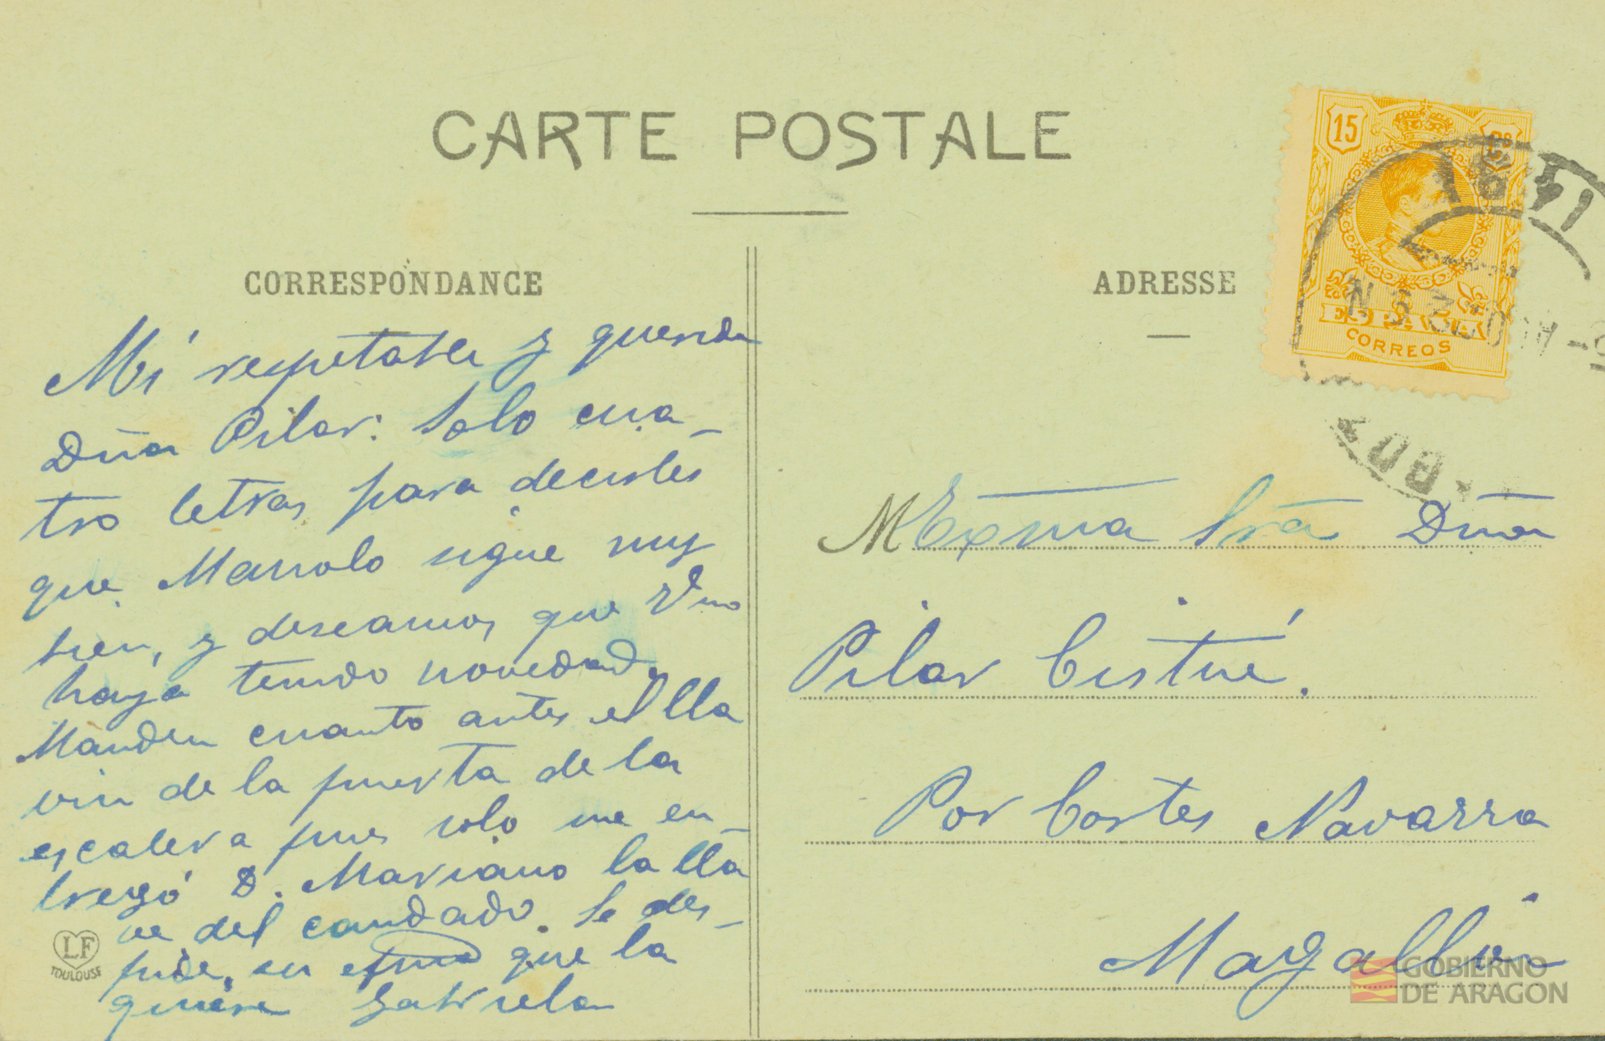 CARTE POSTALE
CORRESPONDANCE
Mi respetable y querida
Dña Pilar: Solo cua-
tro letras para decirles
que Manolo sigue muy
bien, y deseamos que
haya tenido novedad.
Manden cuanto antes el lla
vin de la puerta de la
escalera pues solo me en-
tregó D. Mariano la lla
ve del candado. Se des-
pide, su que la
quiere Gabriela
LF
TOULOUSE
ADRESSE
15
ESPAÑA
CORREOS
Exma Sra Dña
Pilar Cistué.
Por Cortes Navarra
Magallón
GOBIERNO
DE ARAGON